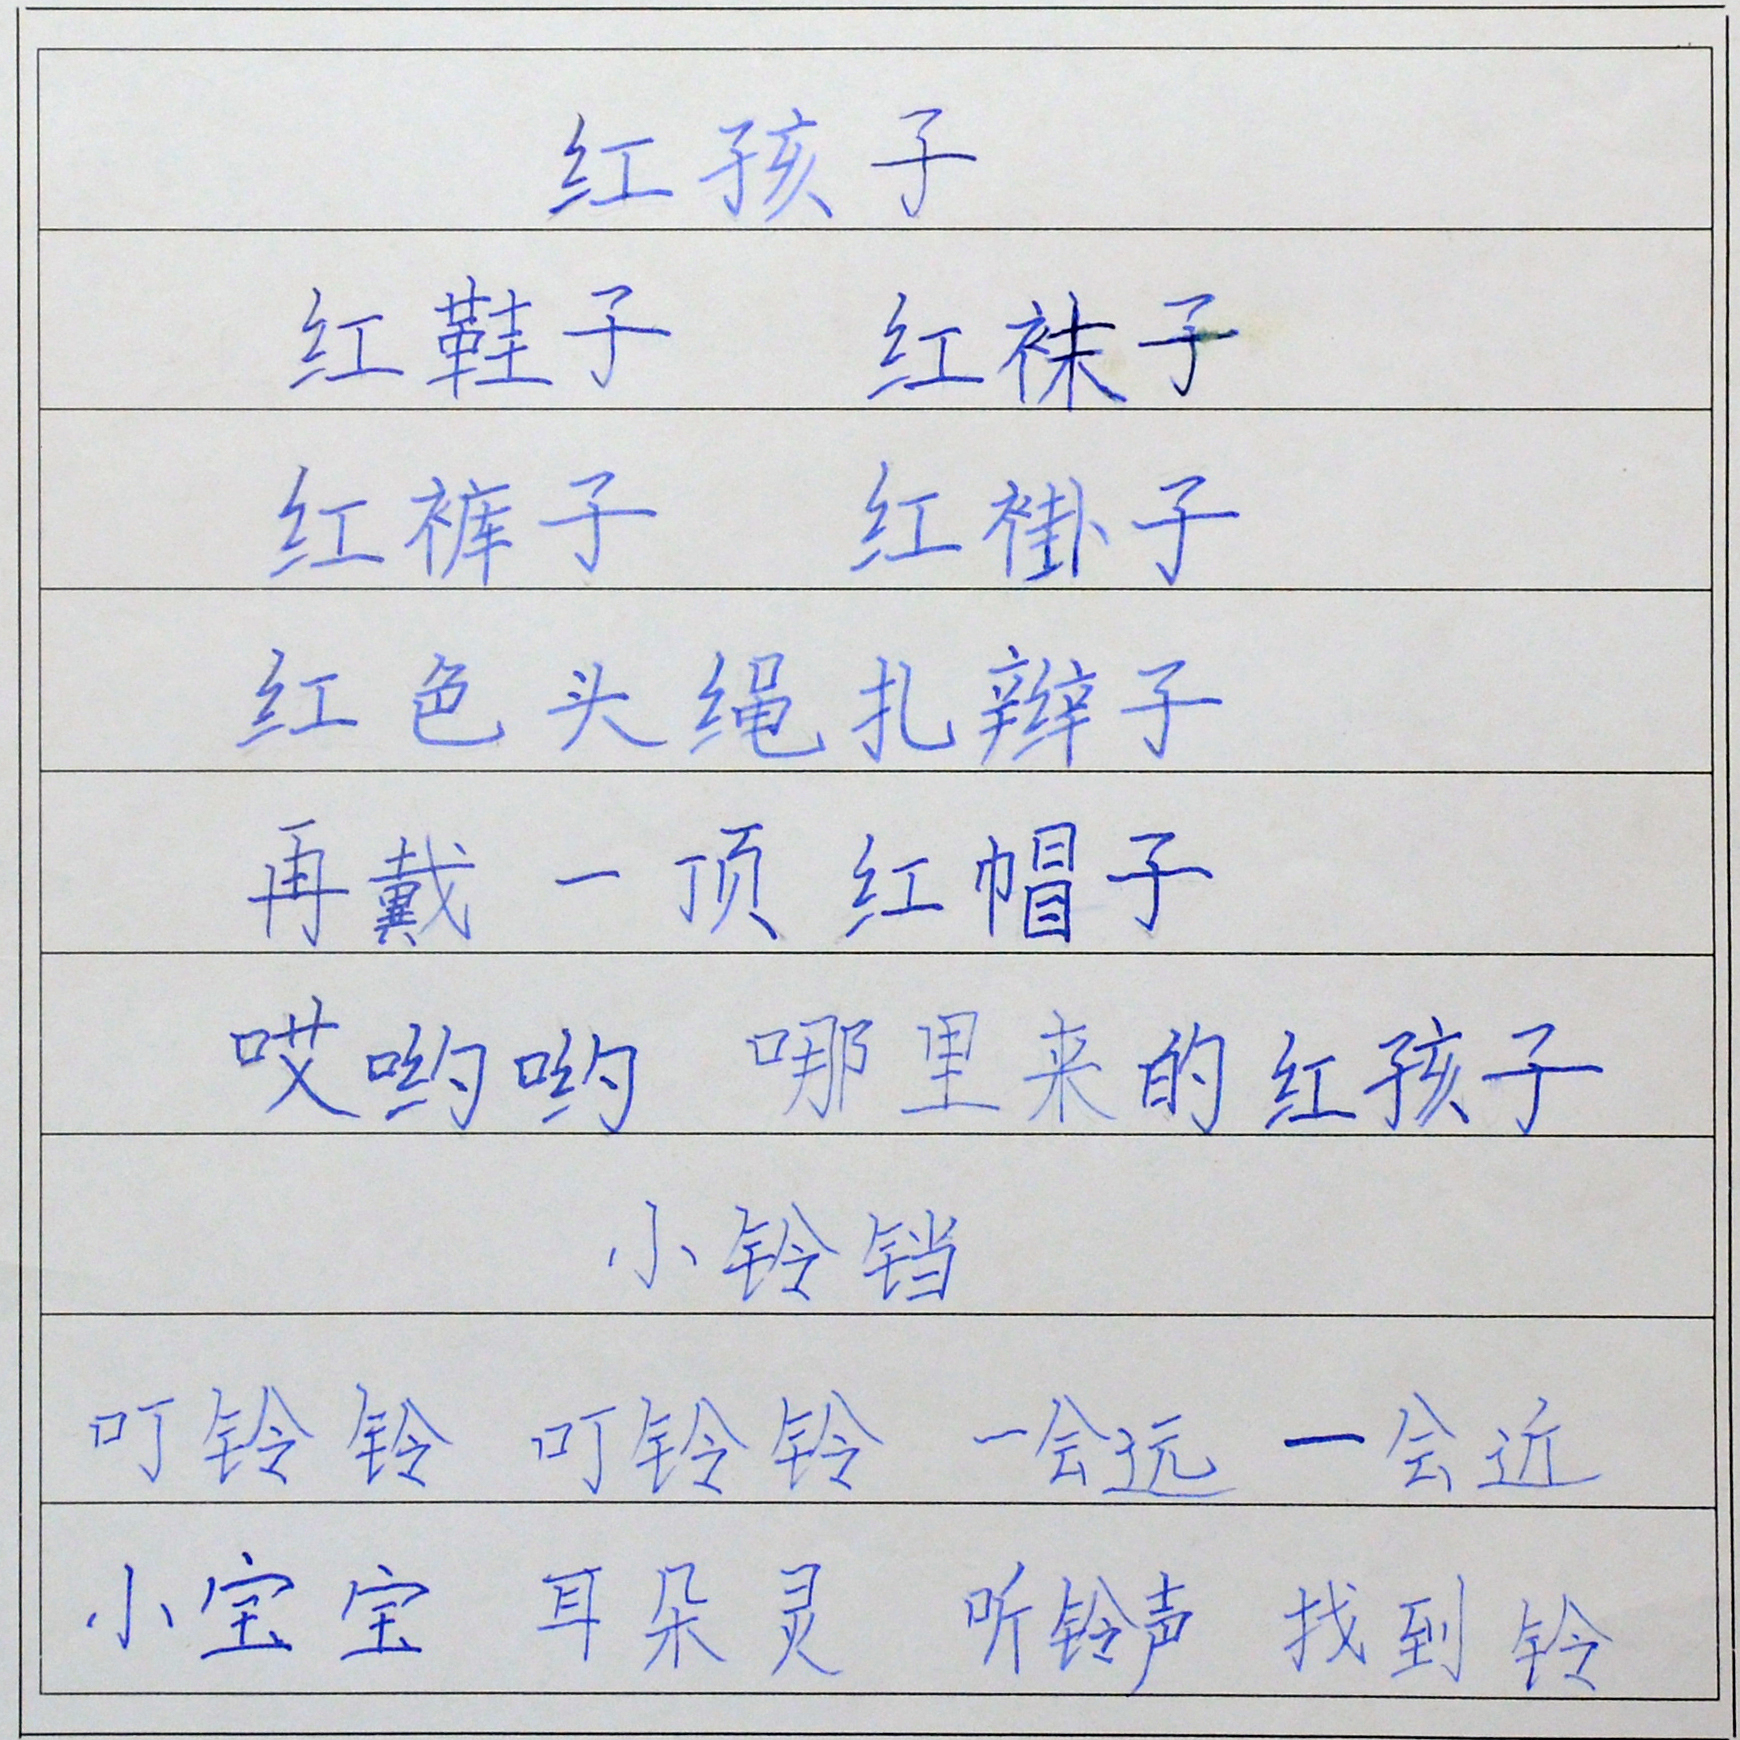 红孩子
红鞋子 红袜子
红裤子 红褂子
红色头绳扎辫子
再戴一顶红帽子
哎哟哟 哪里来的红孩子
小铃铛
叮铃铃 叮铃铃 一会远 一会近
小宝宝 耳朵灵 听铃声 找到铃